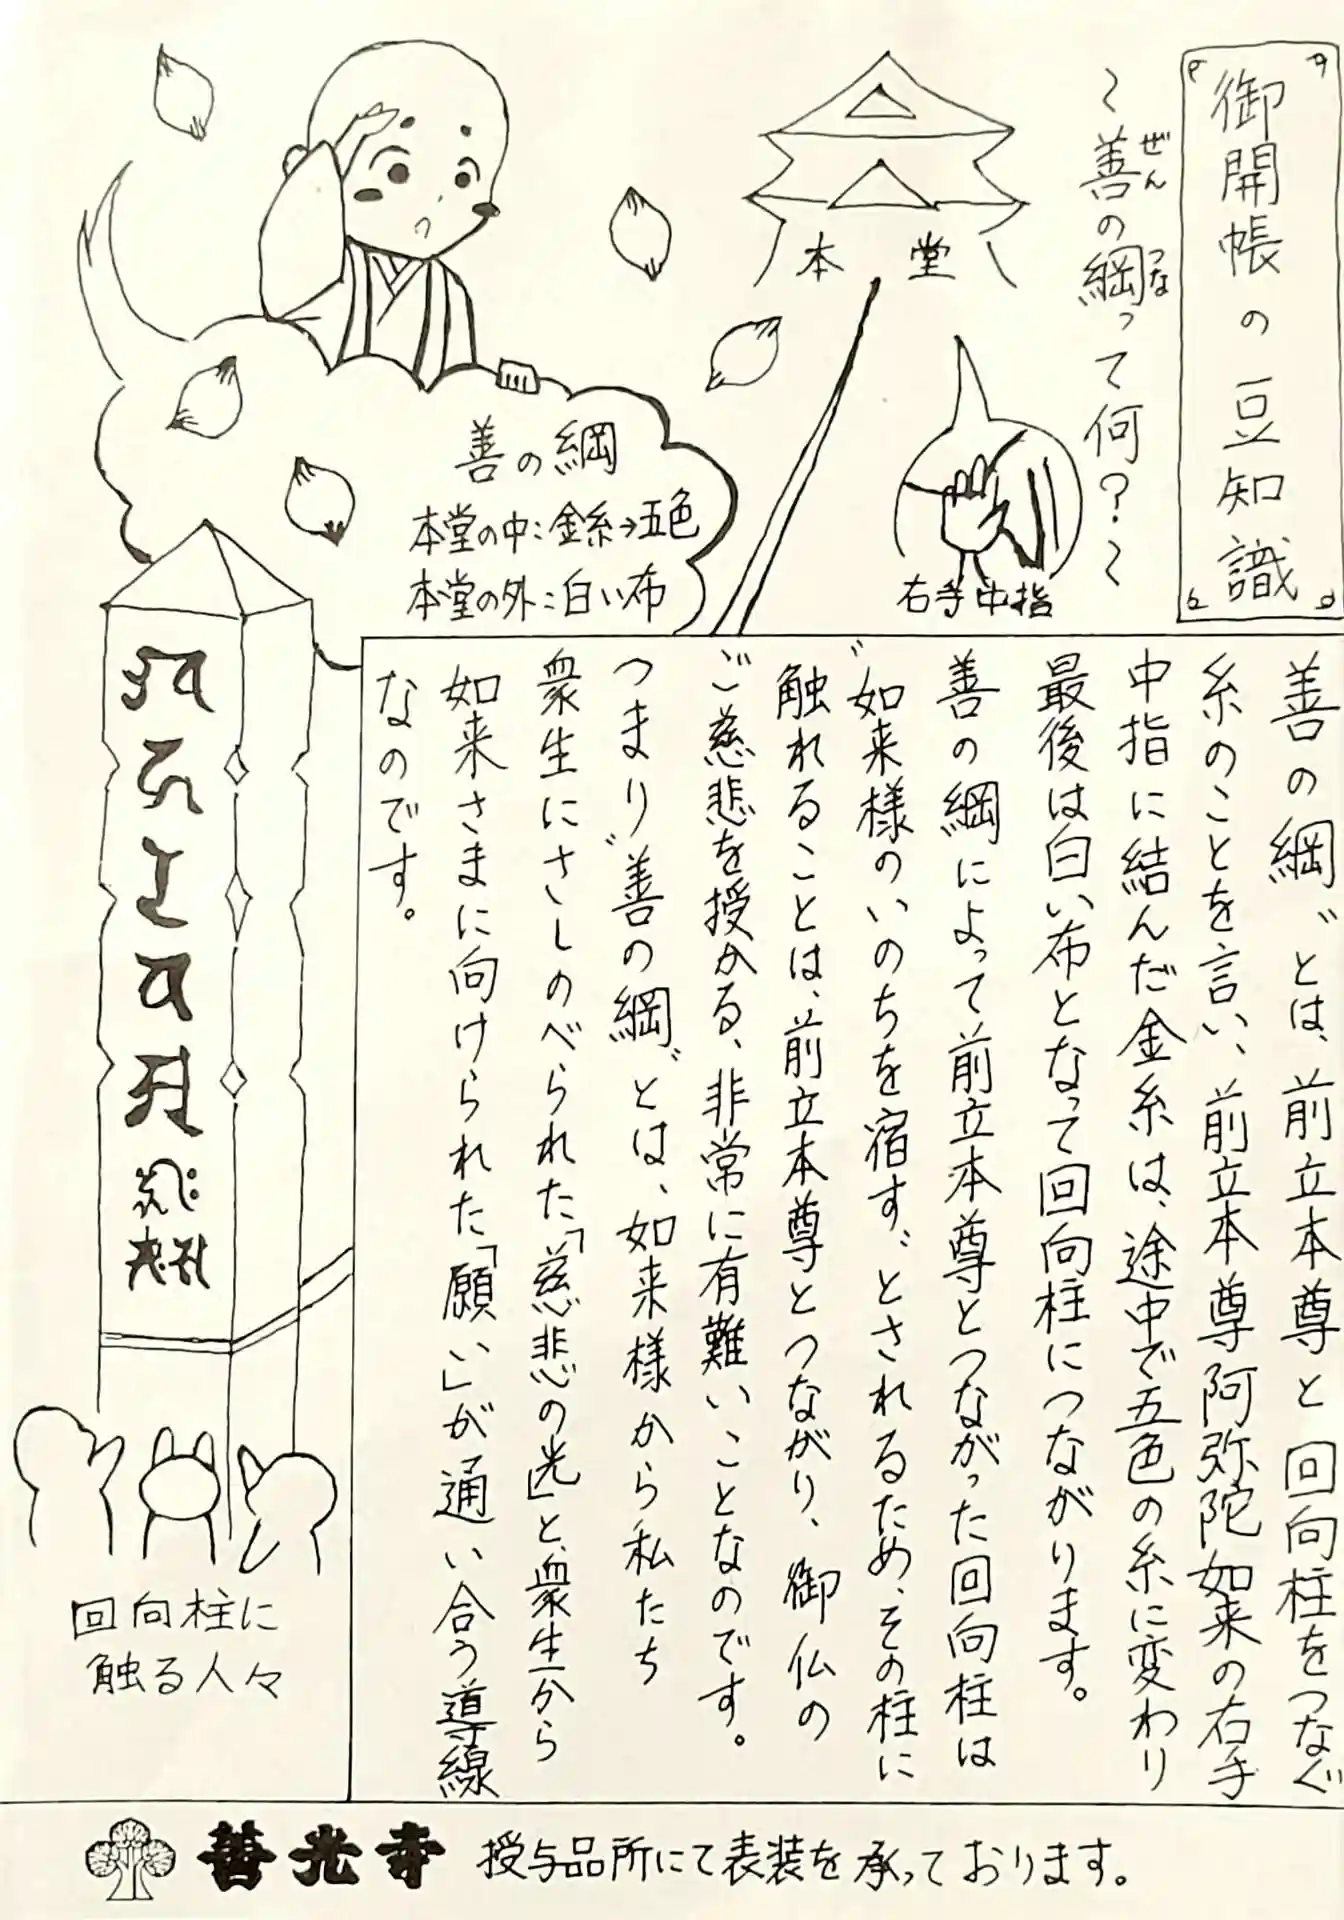 御開帳の豆知識
～善の綱って何？～
ぜん
つな
本堂
右手中指
善の綱
本堂の中：金糸→五色
本堂の外：白い布
善の綱〟とは、前立本尊と回向柱をつなぐ
糸のことを言い、前立本尊阿弥陀如来の右手
中指に結んだ金糸は、途中で五色の糸に変わり
最後は白い布となって回向柱につながります。
善の綱によって前立本尊とつながった回向柱は
〝如来様のいのちを宿す〟とされるため、その柱に
触れることは、前立本尊とつながり、御仏の
ご慈悲を授かる、非常に有難いことなのです。
つまり〝善の綱〟とは、如来様から私たち
衆生にさしのべられた「慈悲の光」と、衆生から
如来さまに向けられた「願い」が通い合う導線
なのです。
回向柱に
触る人々
善光寺 授与品所にて表装を承っております。